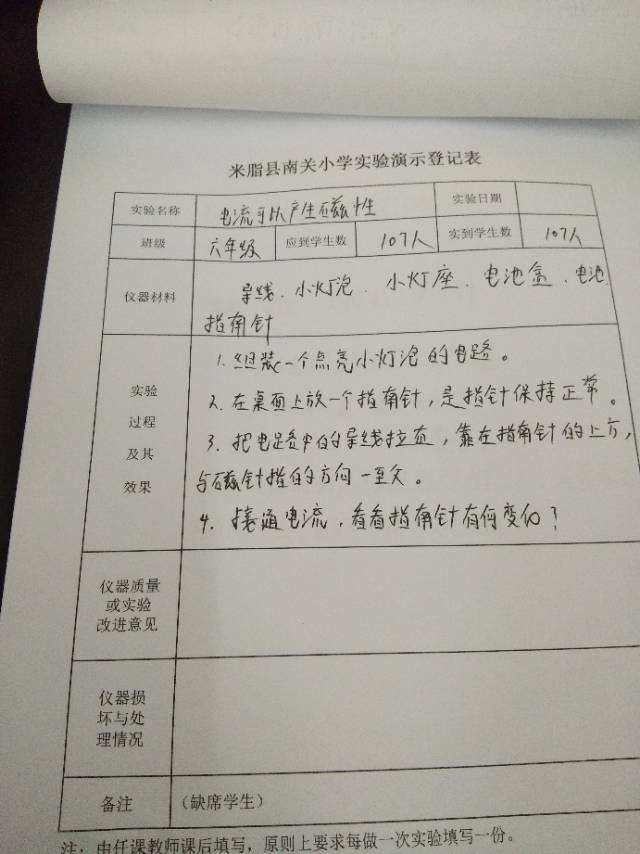 米脂县南关小学实验演示登记表
实验名称 电流可以产生磁性 实验日期
班级 六年级 应到学生数 107人 实到学生数 107人
仪器材料 导线、小灯泡、小灯座、电池盒、电池
指南针
实验
过程
及其
效果
1.组装一个点亮小灯泡的电路。
2.在桌面上放一个指南针,是指针保持正常。
3.把电路中的导线拉直,靠在指南针的上方,
与磁针指的方向一致。
4.接通电流,看看指南针有何变化?
仪器质量
或实验
改进意见
仪器损
坏与处
理情况
备注 (缺席学生)
注:由任课教师课后填写,原则上要求每做一次实验填写一份。